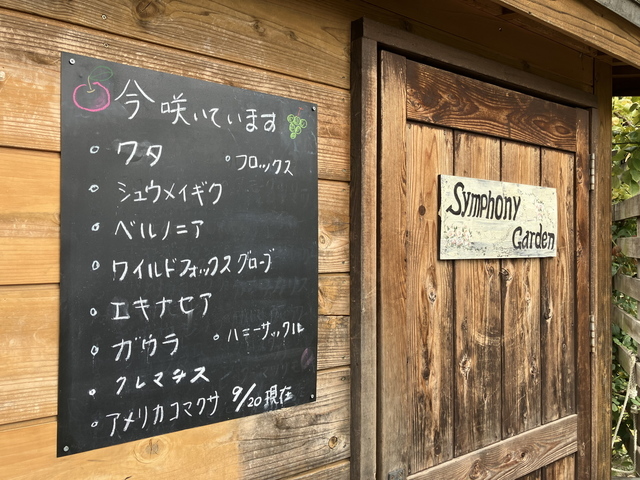 今咲いています
◦ ワタ ◦ フロックス
◦ シュウメイギク
◦ ベルノニア
◦ ワイルドフォックスグローブ
◦ エキナセア
◦ ガウラ ◦ ハニーサックル
◦ クレマチス
◦ アメリカコマクサ 9/20現在
Symphony
Garden